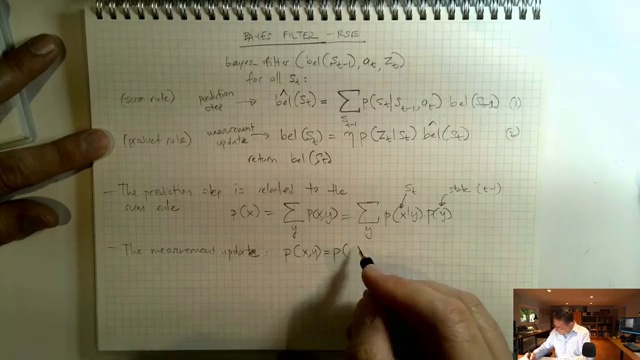 BAYES FILTER - RSE
bayes_filter (bel(S_{t-1}), a_t, Z_t)
for all S_t:
(sum rule) prediction step → bel̂(S_t) = ∑_{S_{t-1}} p(S_t|S_{t-1}, a_t) bel(S_{t-1}) (1)
(product rule) measurement update → bel(S_t) = η p(Z_t|S_t) bel̂(S_t) (2)
return bel(S_t)
S_t state (t-1)
- The prediction step is related to the
sum rule p(x) = ∑_y p(x,y) = ∑_y p(x|y) p(y)
- The measurement update: p(x,y)=p(